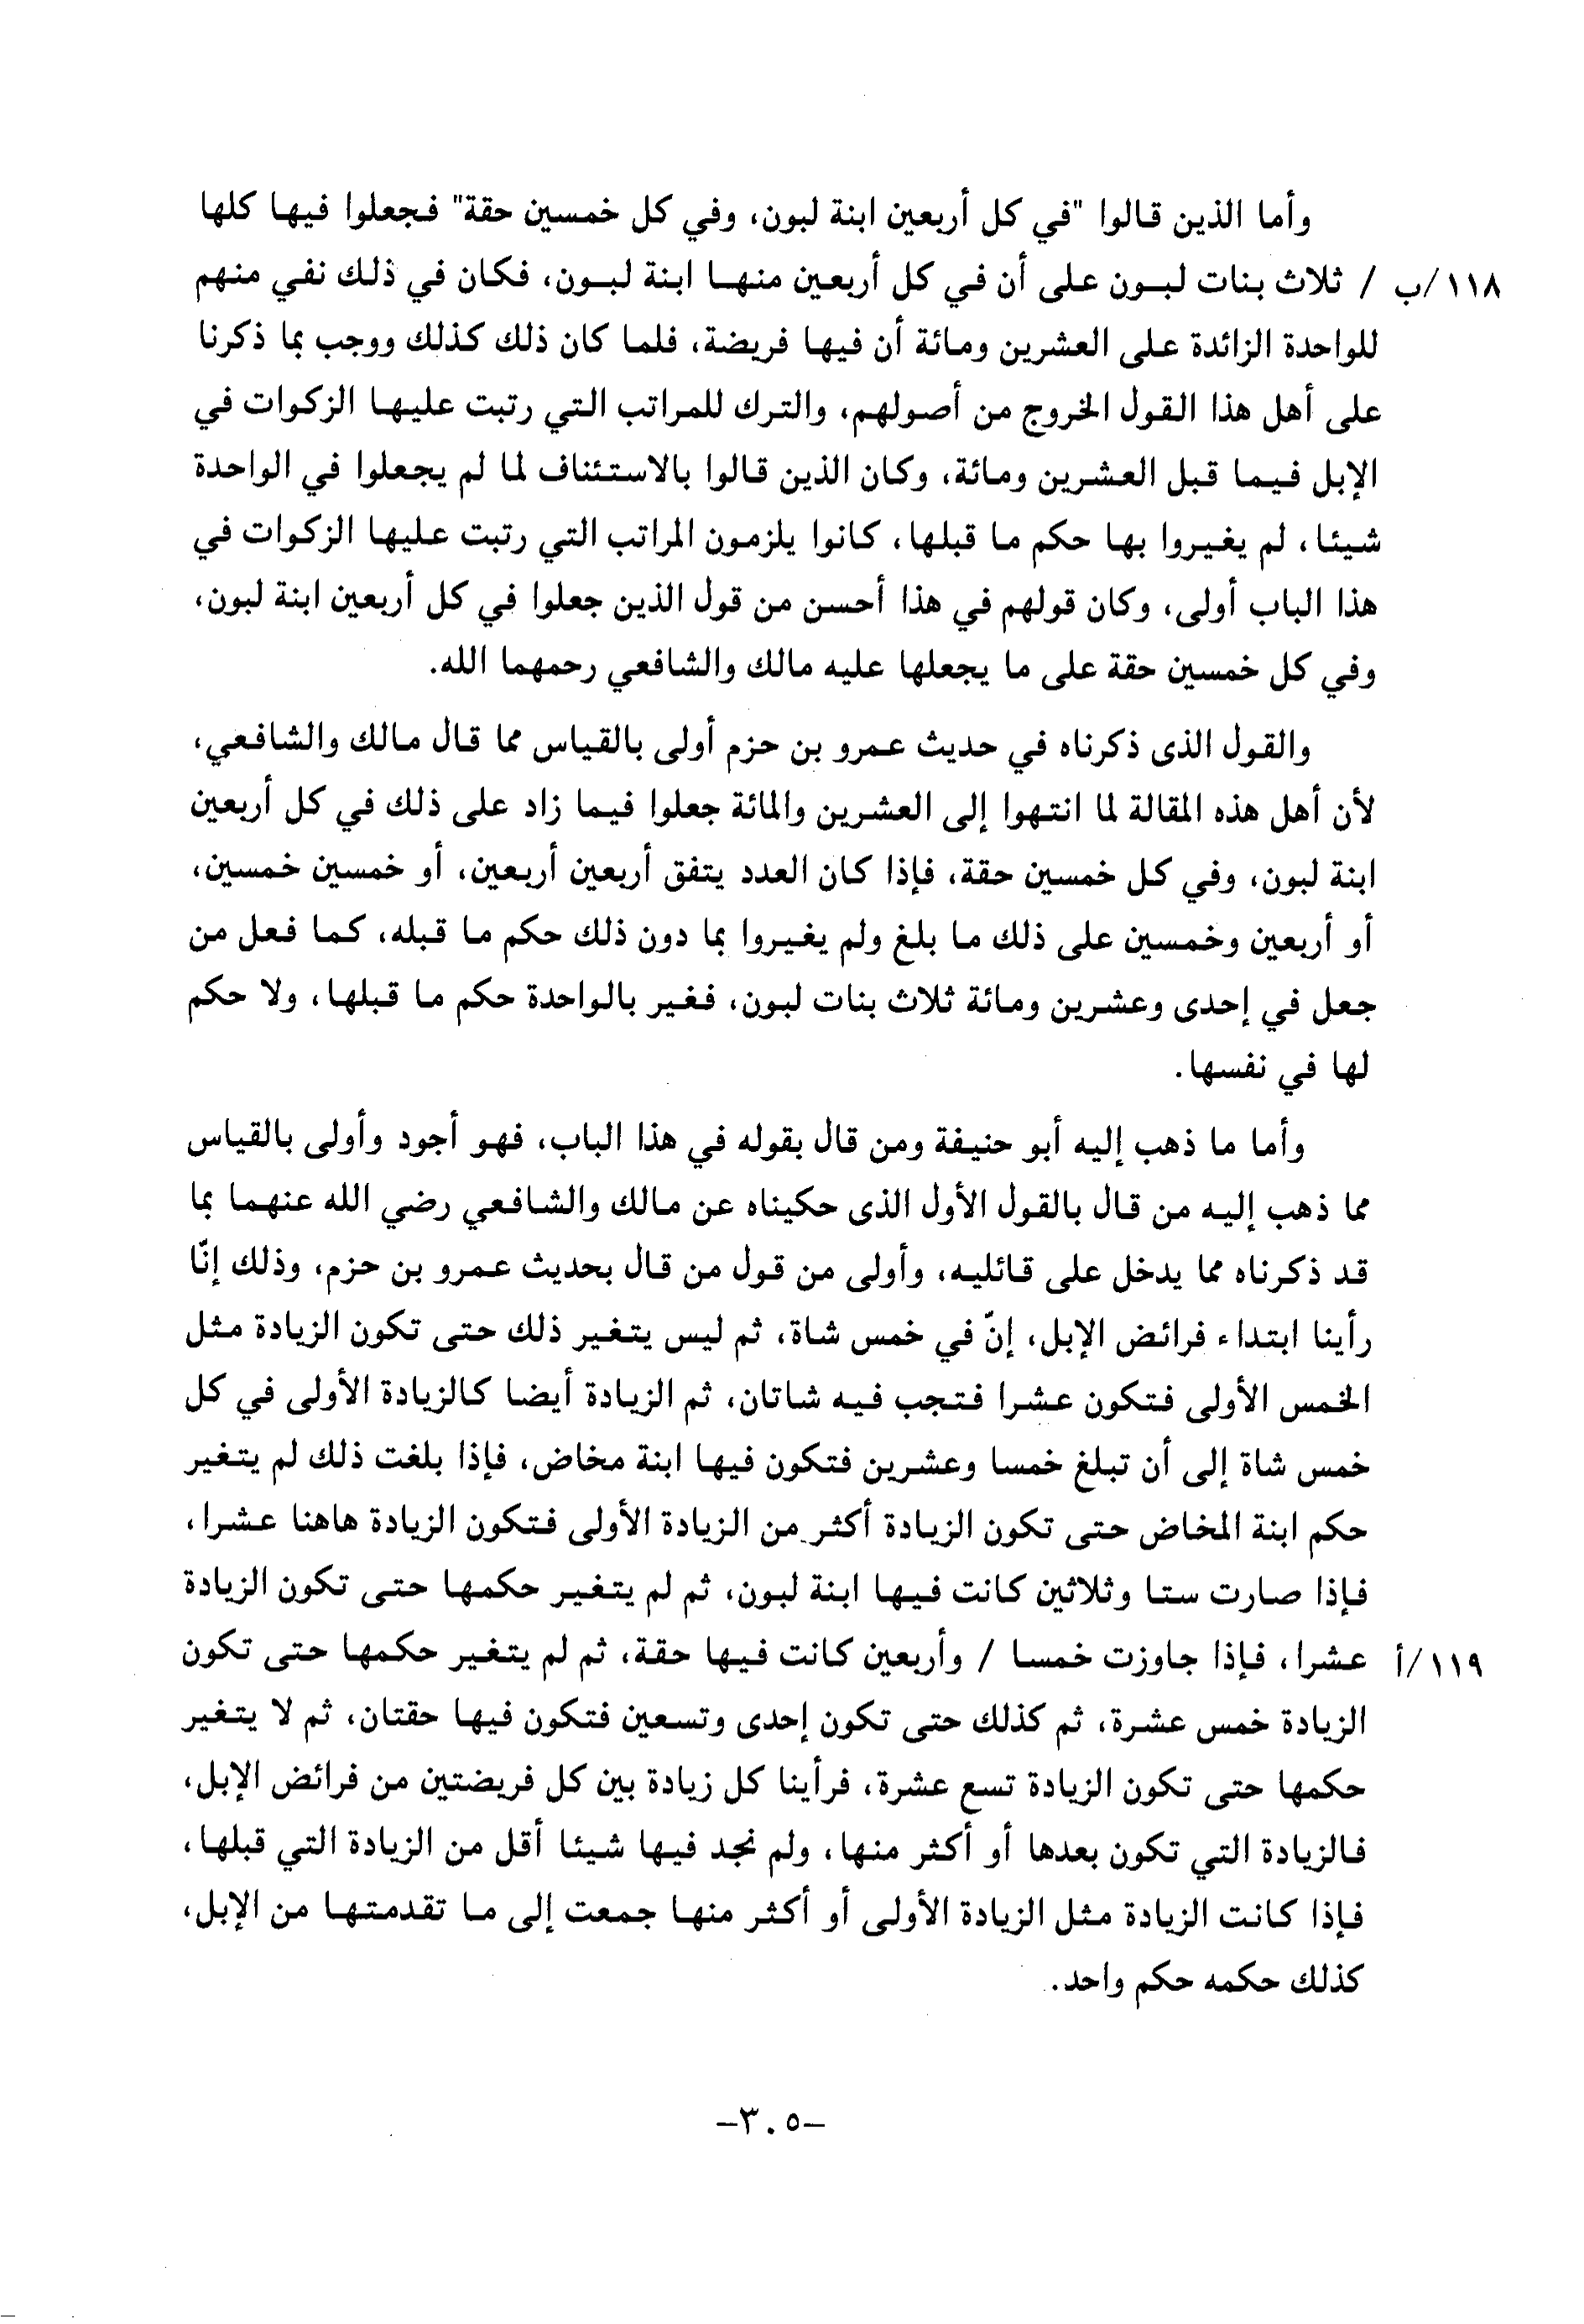 وأما الذين قالوا "في كل أربعين ابنة لبون، وفي كل خمسين حقة" فجعلوا فيها كلها
١١٨/ب / ثلاث بنات لبون على أن في كل أربعين منها ابنة لبون، فكان في ذلك نفي منهم
للواحدة الزائدة على العشرين ومائة أن فيها فريضة، فلما كان ذلك كذلك ووجب بما ذكرنا
على أهل هذا القول الخروج من أصولهم، والترك للمراتب التي رتبت عليها الزكوات في
الإبل فيما قبل العشرين ومائة، وكان الذين قالوا بالاستئناف لما لم يجعلوا في الواحدة
شيئا، لم يغيروا بها حكم ما قبلها، كانوا يلزمون المراتب التي رتبت عليها الزكوات في
هذا الباب أولى، وكان قولهم في هذا أحسن من قول الذين جعلوا في كل أربعين ابنة لبون،
وفي كل خمسين حقة على ما يجعلها عليه مالك والشافعي رحمهما الله.
والقول الذى ذكرناه في حديث عمرو بن حزم أولى بالقياس مما قال مالك والشافعي،
لأن أهل هذه المقالة لما انتهوا إلى العشرين والمائة جعلوا فيما زاد على ذلك في كل أربعين
ابنة لبون، وفي كل خمسين حقة، فإذا كان العدد يتفق أربعين أربعين، أو خمسين خمسين،
أو أربعين وخمسين على ذلك ما بلغ ولم يغيروا بما دون ذلك حكم ما قبله، كما فعل من
جعل في إحدى وعشرين ومائة ثلاث بنات لبون، فغير بالواحدة حكم ما قبلها، ولا حكم
لها في نفسها.
وأما ما ذهب إليه أبو حنيفة ومن قال بقوله في هذا الباب، فهو أجود وأولى بالقياس
مما ذهب إليه من قال بالقول الأول الذى حكيناه عن مالك والشافعي رضي الله عنهما بما
قد ذكرناه مما يدخل على قائليه، وأولى من قول من قال بحديث عمرو بن حزم، وذلك إنّا
رأينا ابتداء فرائض الإبل، إنّ في خمس شاة، ثم ليس يتغير ذلك حتى تكون الزيادة مثل
الخمس الأولى فتكون عشرا فتجب فيه شاتان، ثم الزيادة أيضا كالزيادة الأولى في كل
خمس شاة إلى أن تبلغ خمسا وعشرين فتكون فيها ابنة مخاض، فإذا بلغت ذلك لم يتغير
حكم ابنة المخاض حتى تكون الزيادة أكثر من الزيادة الأولى فتكون الزيادة هاهنا عشرا،
فإذا صارت ستا وثلاثين كانت فيها ابنة لبون، ثم لم يتغير حكمها حتى تكون الزيادة
١١٩/أ عشرا، فإذا جاوزت خمسا / وأربعين كانت فيها حقة، ثم لم يتغير حكمها حتى تكون
الزيادة خمس عشرة، ثم كذلك حتى تكون إحدى وتسعين فتكون فيها حقتان، ثم لا يتغير
حكمها حتى تكون الزيادة تسع عشرة، فرأينا كل زيادة بين كل فريضتين من فرائض الإبل،
فالزيادة التي تكون بعدها أو أكثر منها، ولم نجد فيها شيئا أقل من الزيادة التي قبلها،
فإذا كانت الزيادة مثل الزيادة الأولى أو أكثر منها جمعت إلى ما تقدمتها من الإبل،
كذلك حكمه حكم واحد.
-٣٠٥-